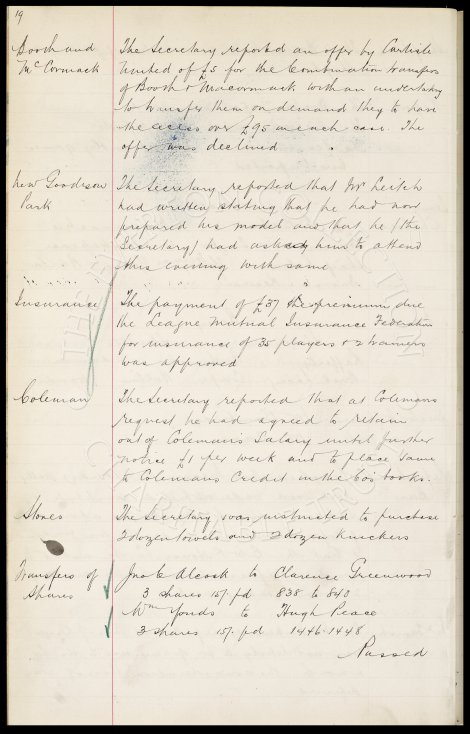 19
Booth and
McCormack
The Secretary reported an offer by Carlisle
United of £5 for the Combination transfers
of Booth & Macormack with an undertaking
to transfer them on demand they to have
the excess over £95 in each case. The
offer was declined
New Goodison
Park
The Secretary reported that Mr Leitch
had written stating that he had now
prepared his model and that he (the
Secretary) had asked him to attend
this evening with same
Insurance
The payment of £37 the premium due
the League Mutual Insurance Federation
for insurance of 35 players & 2 trainers
was approved
Coleman
The Secretary reported that at Colemans
request he had agreed to retain
out of Colemans Salary until further
notice £1 per week and to place same
to Colemans Credit in the Co's books.
Stores
The Secretary was instructed to purchase
2 dozen towels and 2 dozen knickers
Transfers of
Shares
Jno C Alcock to Clarence Greenwood
3 shares 15/- pd 838 to 840
Wm Yonds to Hugh Peace
3 shares 15/- pd 1446-1448
Passed